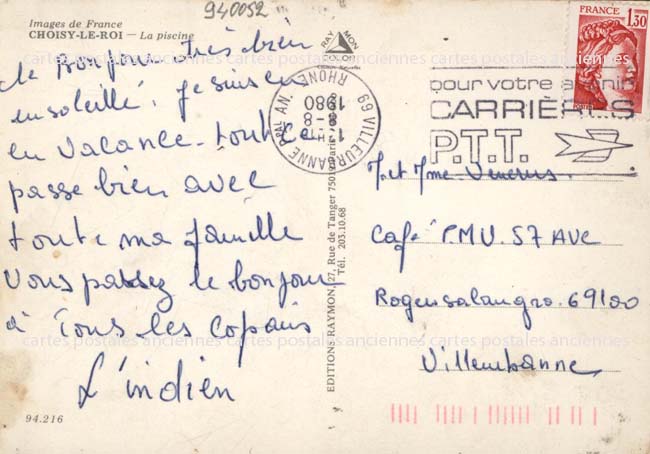 940052
Images de France
CHOISY-LE-ROI — La piscine
Le bonjour très bien
ensoleillé. Je suis en
en vacance. toute ce
passe bien avec
toute ma famille
Vous passez le bonjour
à tous les copains
L'indien
94.216
RAYMON
EDITIONS RAYMON, 27, Rue de Tanger 75019 Paris
Tél. 203.10.68
69 VILLEURBANNE PAL AN.
RHONE
17H
8-8
1980
pour votre avenir
CARRIÈRES
P.T.T.
FRANCE
1,30
POSTES
M. et Mme
Café P.M.U. 57 AVE
Rogersalangro. 69100
Villeurbanne
cartes postales anciennes cartes postales anciennes cartes postales anciennes
cartes postales anciennes cartes postales anciennes cartes postales anciennes